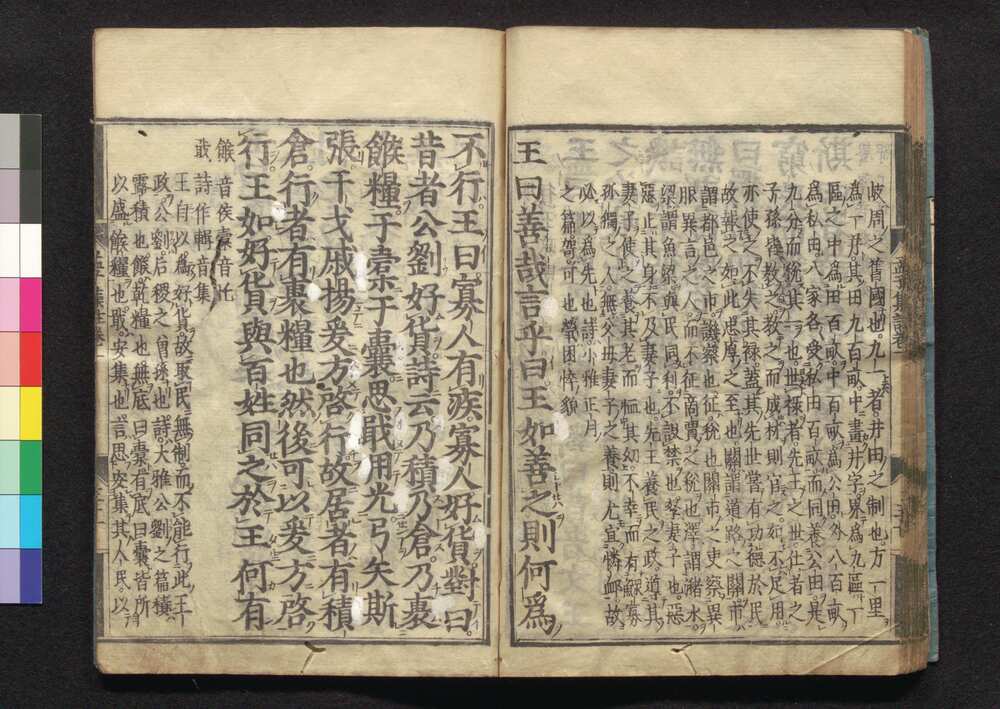 岐周之舊國也九一者井田之制也方一里
為一井其田九百畝中畫井字界為九區一
區之中為田百畝中百畝為公田外八百畝
為私田八家各受私田百畝而同養公田是
九分而稅其一也世祿者先王之世仕者之
子孫皆教之教之而成材則官之如不足用
亦使之不失其祿蓋其先世嘗有功德於民
故報之如此忠厚之至也關謂道路之關市
謂都邑之市譏察也征稅也關市之吏察異
服異言之人而不征商賈之稅也澤謂瀦水
梁謂魚梁與民同利不設禁也孥妻子也惡
惡止其身不及妻子也先王養民之政導其
妻子使之養其老而恤其幼不幸而有鰥寡
孤獨之人無父母妻子之養則尤宜憐䘏故
必以為先也詩小雅正月
之篇哿可也煢困悴貌
王曰善哉言乎曰王如善之則何為
不行王曰寡人有疾寡人好貨對曰
昔者公劉好貨詩云乃積乃倉乃裹
餱糧于橐于囊思戢用光弓矢斯
張干戈戚揚爰方啓行故居者有積
倉行者有裹糧也然後可以爰方啓
行王如好貨與百姓同之於王何有
餱音侯橐音托
戢詩作輯音集
王自以為好貨故取民無制而不能行此王
政公劉后稷之曾孫也詩大雅公劉之篇積
露積也餱乾糧也無底曰橐有底曰囊皆所
以盛餱糧也戢安集也言思安集其人民以